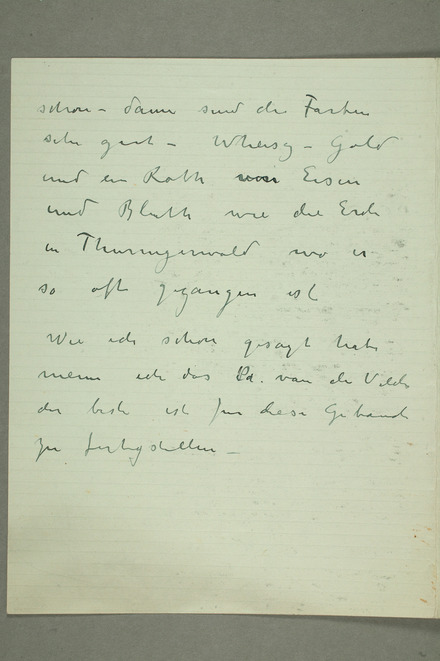 schon – dann sind die Farben
sehr gut – Whisky – Gold
und ein Roth von Eisen
und Bluth wie die Erde
in Thuringerwald wo er
so oft gegangen ist
Wie ich schon gesagt habe
meine ich das van de Velde
der beste ist für diese Gebäude
zu fertigstellen –